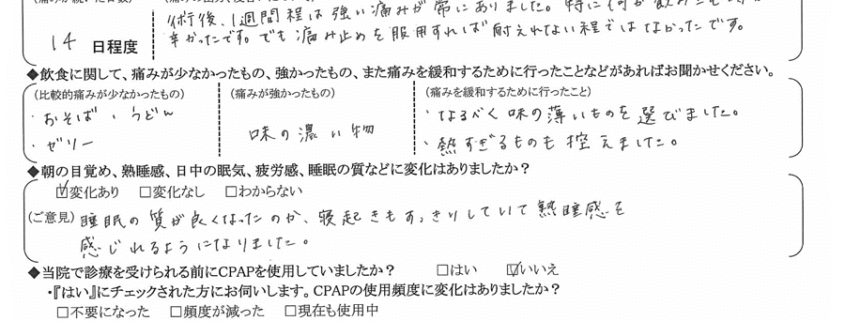 術後、1週間程は強い痛みが常にありました。特に何か飲み
14 日程度
辛かったです。でも痛み止めを服用すれば耐えれない程ではなかったです。
◆飲食に関して、痛みが少なかったもの、強かったもの、また痛みを緩和するために行ったことなどがあればお聞かせください。
(比較的痛みが少なかったもの) (痛みが強かったもの) (痛みを緩和するために行ったこと)
・おそば、うどん ・なるべく味の薄いものを選びました。
味の濃い物
・ゼリー ・熱すぎるものも控えました。
◆朝の目覚め、熟睡感、日中の眠気、疲労感、睡眠の質などに変化はありましたか?
☑変化あり □変化なし □わからない
(ご意見) 睡眠の質が良くなったのか、寝起きもすっきりしていて熟睡感を
感じれるようになりました。
◆当院で診療を受けられる前にCPAPを使用していましたか? □はい ☑いいえ
・『はい』にチェックされた方にお伺いします。CPAPの使用頻度に変化はありましたか?
□不要になった □頻度が減った □現在も使用中